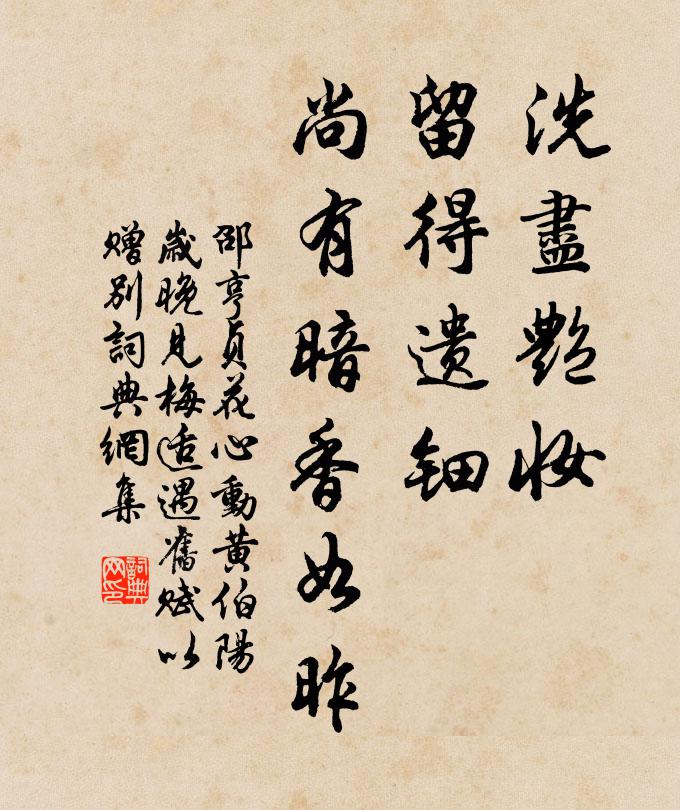 洗盡艷妝
留得遗鈿
尚有暗香如昨
邵亨貞花心動黄伯陽
歲晚見梅适遇舊赋以
赠别詞典網集
詞典
网印